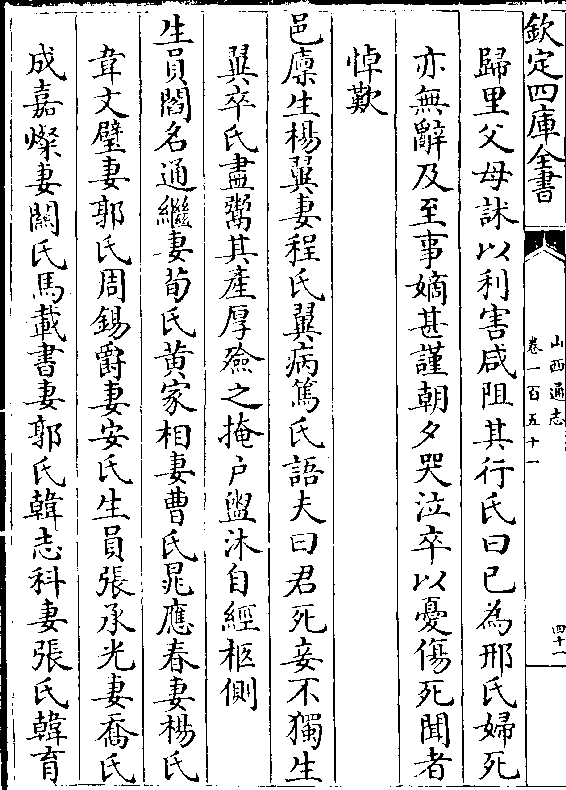 欽定四庫全書
山西通志
卷一百五十一
四十一
歸里父母訹以利害咸阻其行氏曰已為邢氏婦死
亦無辭及至事嫡甚謹朝夕哭泣卒以憂傷死聞者
悼歎
邑廪生楊翼妻程氏翼病篤氏語夫曰君死妾不獨生
翼卒氏盡鬻其產厚殮之掩户盥沐自經柩側
生員閻名通繼妻荀氏黄家相妻曹氏晁應春妻楊氏
韋文璧妻郭氏周錫爵妻安氏生員張承光妻喬氏
成嘉燦妻闗氏馬載書妻郭氏韓志科妻張氏韓育